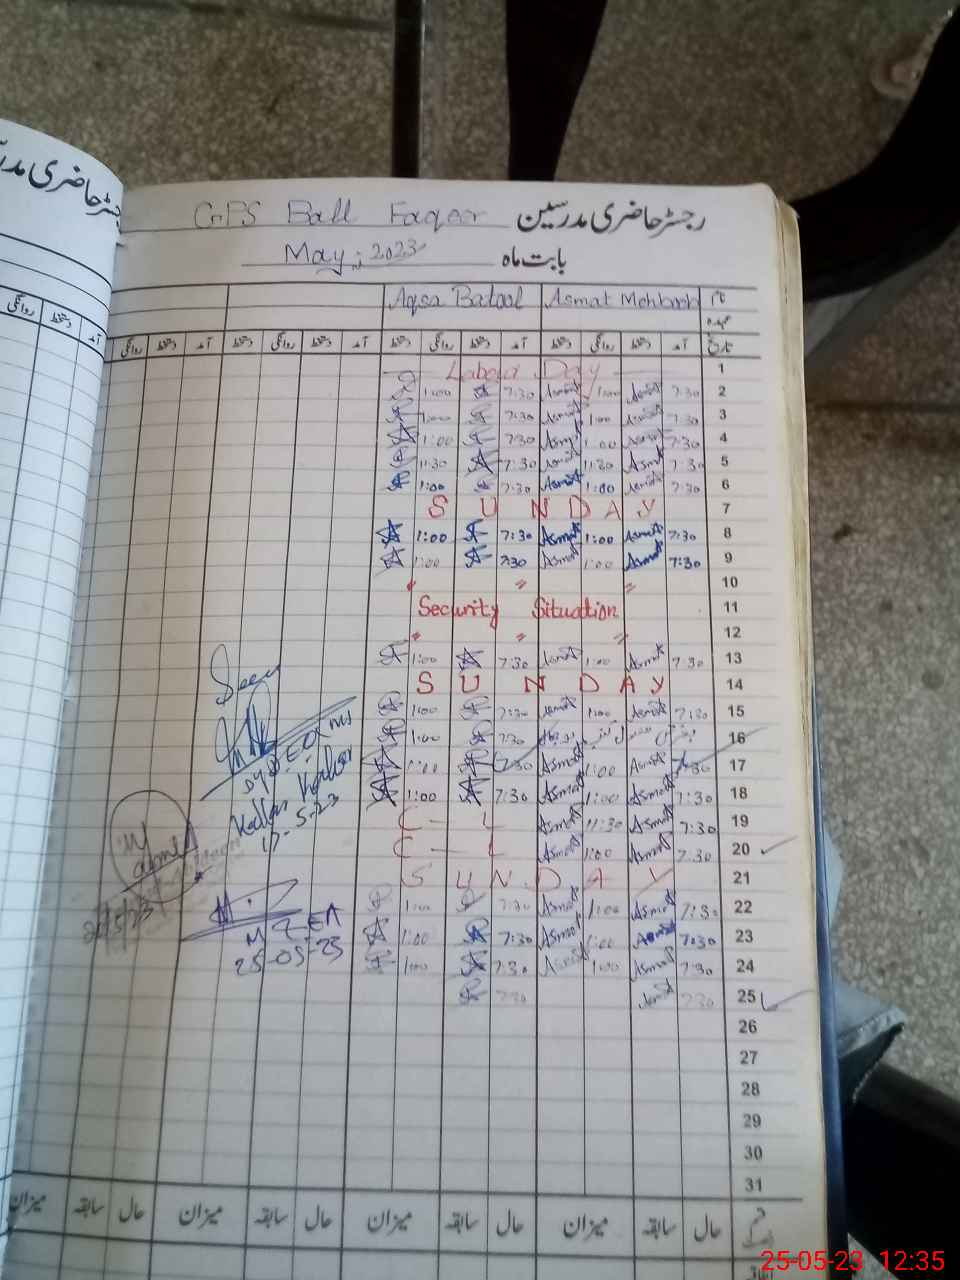 GPS Ball Faqeer رجسٹر حاضری مدرسین
May, 2023 بابت ماہ
Aqsa Batool Asmat Mehboob نام
عہدہ
روانگی دستخط آمد دستخط روانگی دستخط آمد دستخط روانگی دستخط آمد دستخط روانگی دستخط آمد تاریخ
Labour Day 1
1:00 7:30 Asmat 1:00 Asmat 7:30 2
1:00 7:30 Asmat 1:00 Asmat 7:30 3
1:00 7:30 Asmat 1:00 Asmat 7:30 4
11:30 7:30 Asmat 11:30 Asmat 7:30 5
1:00 7:30 Asmat 1:00 Asmat 7:30 6
SUNDAY 7
1:00 7:30 Asmat 1:00 Asmat 7:30 8
1:00 7:30 Asmat 1:00 Asmat 7:30 9
" " " 10
Security Situation 11
" " " 12
1:00 7:30 Asmat 1:00 Asmat 7:30 13
SUNDAY 14
1:00 7:30 Asmat 1:00 Asmat 7:30 15
1:00 7:30 16
1:00 7:30 Asmat 1:00 Asmat 7:30 17
1:00 7:30 Asmat 1:00 Asmat 7:30 18
C - L Asmat 11:30 Asmat 7:30 19
C - L Asmat 1:00 Asmat 7:30 20
SUNDAY 21
1:00 7:30 Asmat 1:00 Asmat 7:30 22
1:00 7:30 Asmat 1:00 Asmat 7:30 23
1:00 7:30 Asmat 1:00 Asmat 7:30 24
7:30 Asmat 7:30 25
26
27
28
29
30
31
Seen
Dy D.E.O
Kallar Kahar
17-5-23
MEA
25-05-23
میزان سابقہ حال میزان سابقہ حال میزان سابقہ حال میزان سابقہ حال
رجسٹر حاضری مدر
روانگی دستخط آمد
25-05-23 12:35